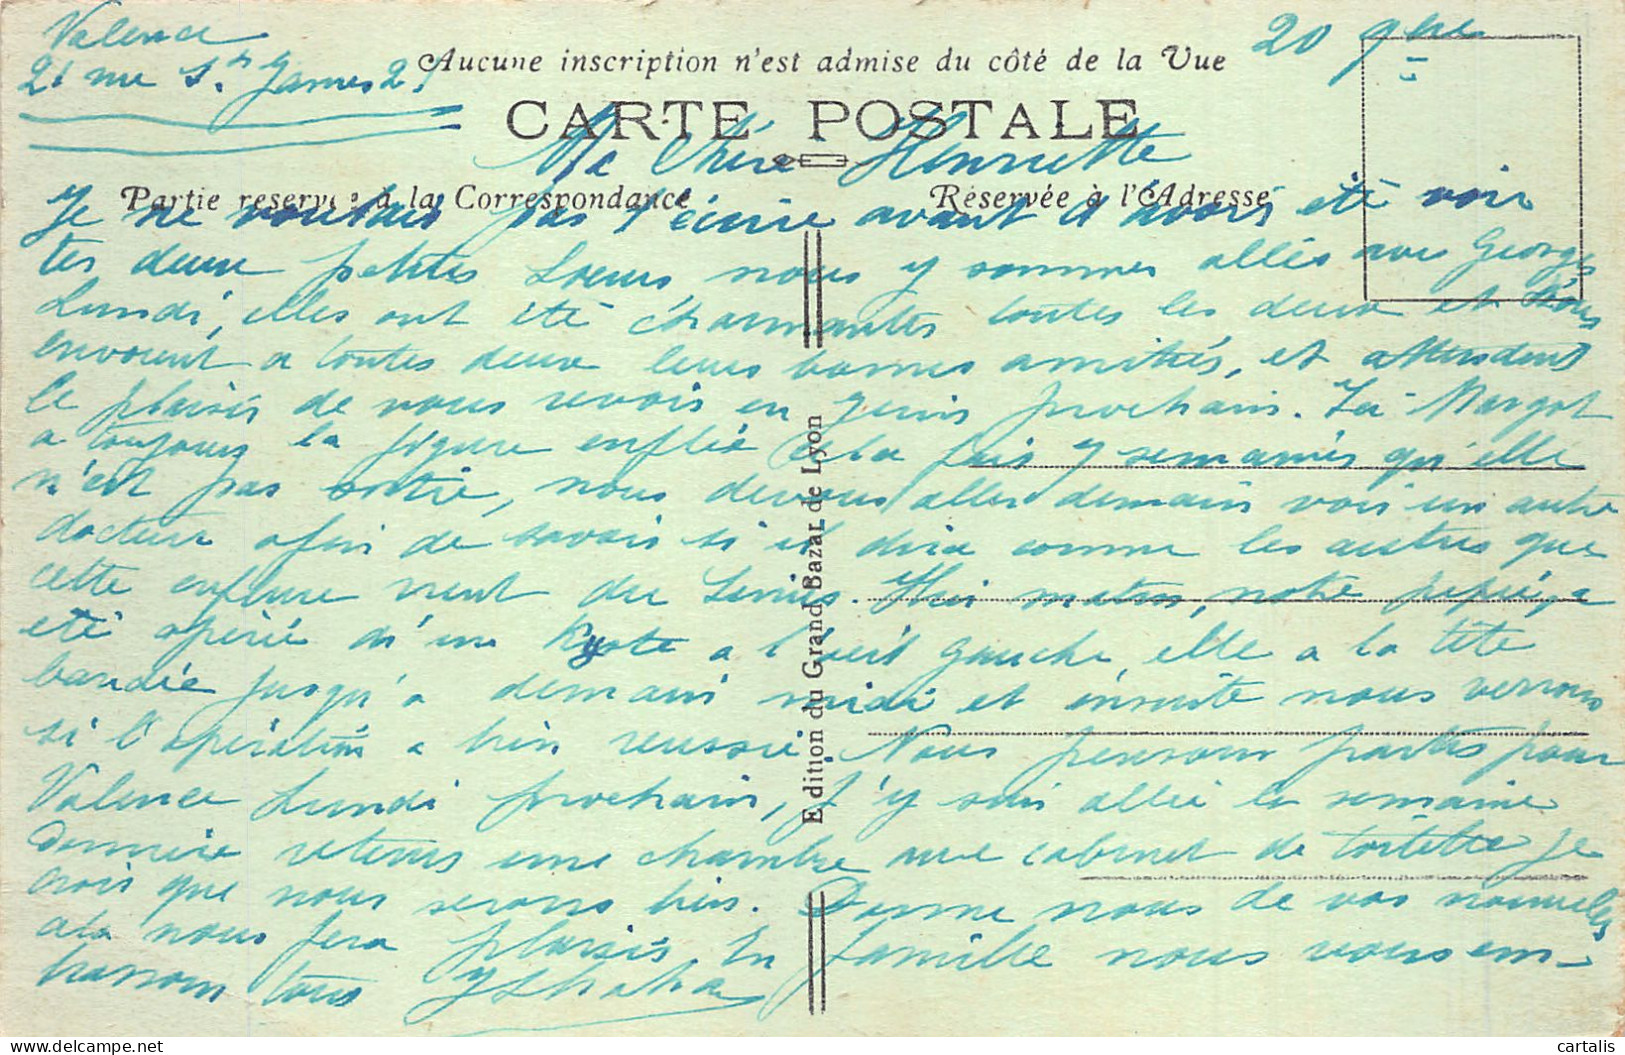 Valence
21 rue St. James 21
20 9bre
Aucune inscription n'est admise du côté de la Vue
CARTE POSTALE
Ma Chère Henriette
Partie reservée à la Correspondance
Réservée à l'Adresse
Je ne voulais pas t'écrire avant d'avoir été voir
tes deux petites soeurs nous y sommes allés avec Georges
Lundi, elles ont été charmantes toutes les deux et vous
envoient a toutes deux leurs bonnes amitiés, et attendent
le plaisir de vous revoir en Juin prochain. La Margot
a toujours la figure enflée cela fait 7 semaines qu'elle
n'est pas sortie, nous devons aller demain voir un autre
docteur afin de savoir si il dira comme les autres que
cette enflure vient du Sinus. Hier matin, notre pépée a
été opérée d'un Kyste a l'oeil gauche, elle a la tête
bandée jusqu'a demain midi et ensuite nous verrons
si l'opération a bien reussie. Nous pensons partir pour
Valence Lundi prochain, J'y suis allée la semaine
dernière retenir une chambre avec cabinet de toilette je
crois que nous serons bien. Donne nous de vos nouvelles
cela nous fera plaisir. En famille nous vous em-
brassons tous
Edition du Grand Bazar de Lyon
cartalis